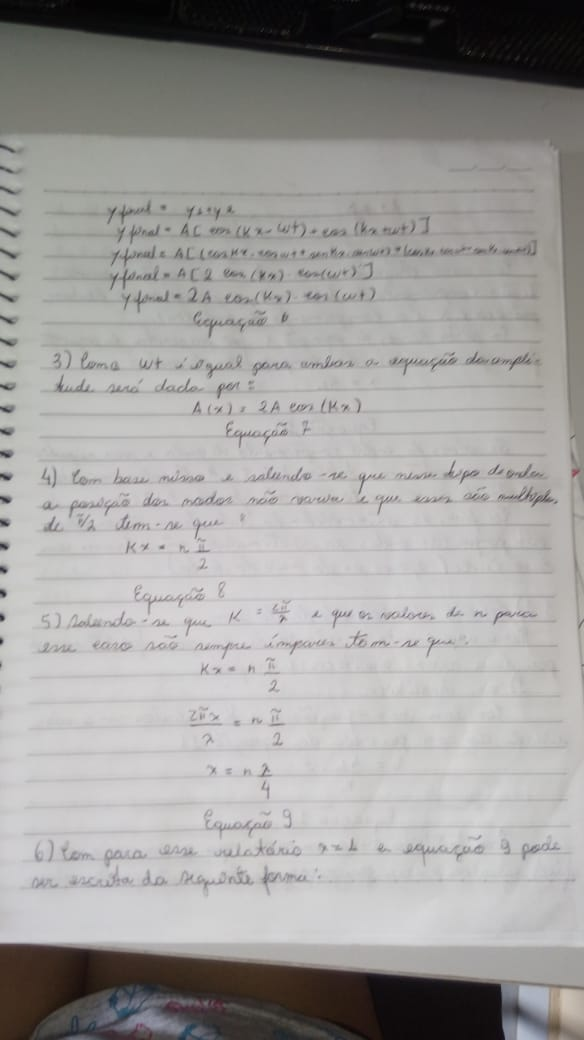 y final = y1+y2
y final = A[ cos(Kx - wt) + cos (Kx + wt)]
y final = A[(cos Kx . cos wt + sen Kx . sen wt) +
y final = A[2 cos(Kx) . cos(wt)]
y final = 2A cos(Kx) . cos(wt)
Equação 6
3) Como wt é igual para ambas a equação da ampli-
tude será dada por:
A(x) = 2A cos(Kx)
Equação 7
4) Com base nisso e sabendo-se que nesse tipo de onda
a posição dos nodos não varia e que esses são multiplos
de π/2 tem-se que:
Kx = n π/2
Equação 8
5) Sabendo-se que K = 2π/λ e que os valores de n para
esse caso são sempre impares tem-se que:
Kx = n π/2
2πx/λ = n π/2
x = n λ/4
Equação 9
6) Com para esse relatório x=L a equação 9 pode
ser escrita da seguinte forma: